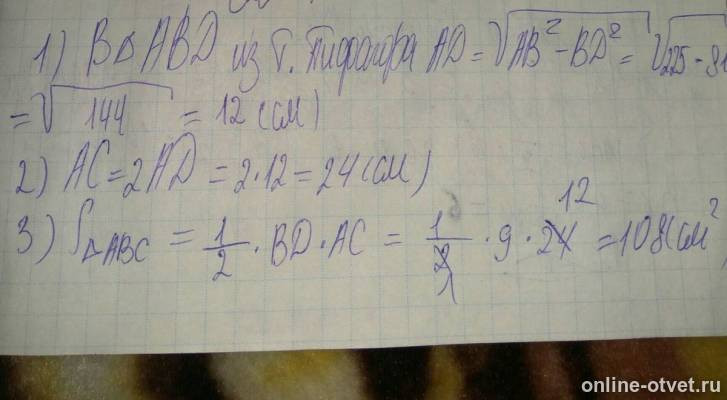 1) В △ABD из т. Пифагора AD = √AB² - BD² = √225 - 81
= √144 = 12 (см)
2) AC = 2AD = 2·12 = 24 (см)
3) S△ABC = 1/2 · BD · AC = 1/2 · 9 · 24 = 108 (см²
12
1
online-otvet.ru